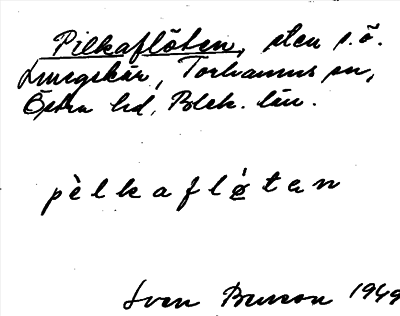 Pilkaflöten, sten s.ö.
Lungskär, Torhamns sn,
Östra hd, Blek. län.
pèlkaflø̀tan
Sven Benson 1949